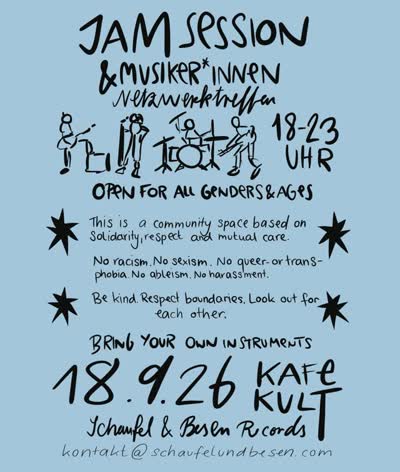 JAM SESSION
& MUSIKER*INNEN
Netzwerktreffen
18-23
UHR
OPEN FOR ALL GENDERS & AGES
This is a community space based on
Solidarity, respect and mutual care.
No racism. No sexism. No queer- or trans-
phobia. No ableism. No harassment.
Be kind. Respect boundaries. Look out for
each other.
BRING YOUR OWN INSTRUMENTS
18.9.26 KAFE
KULT
Schaufel & Besen Records
kontakt@schaufelundbesen.com